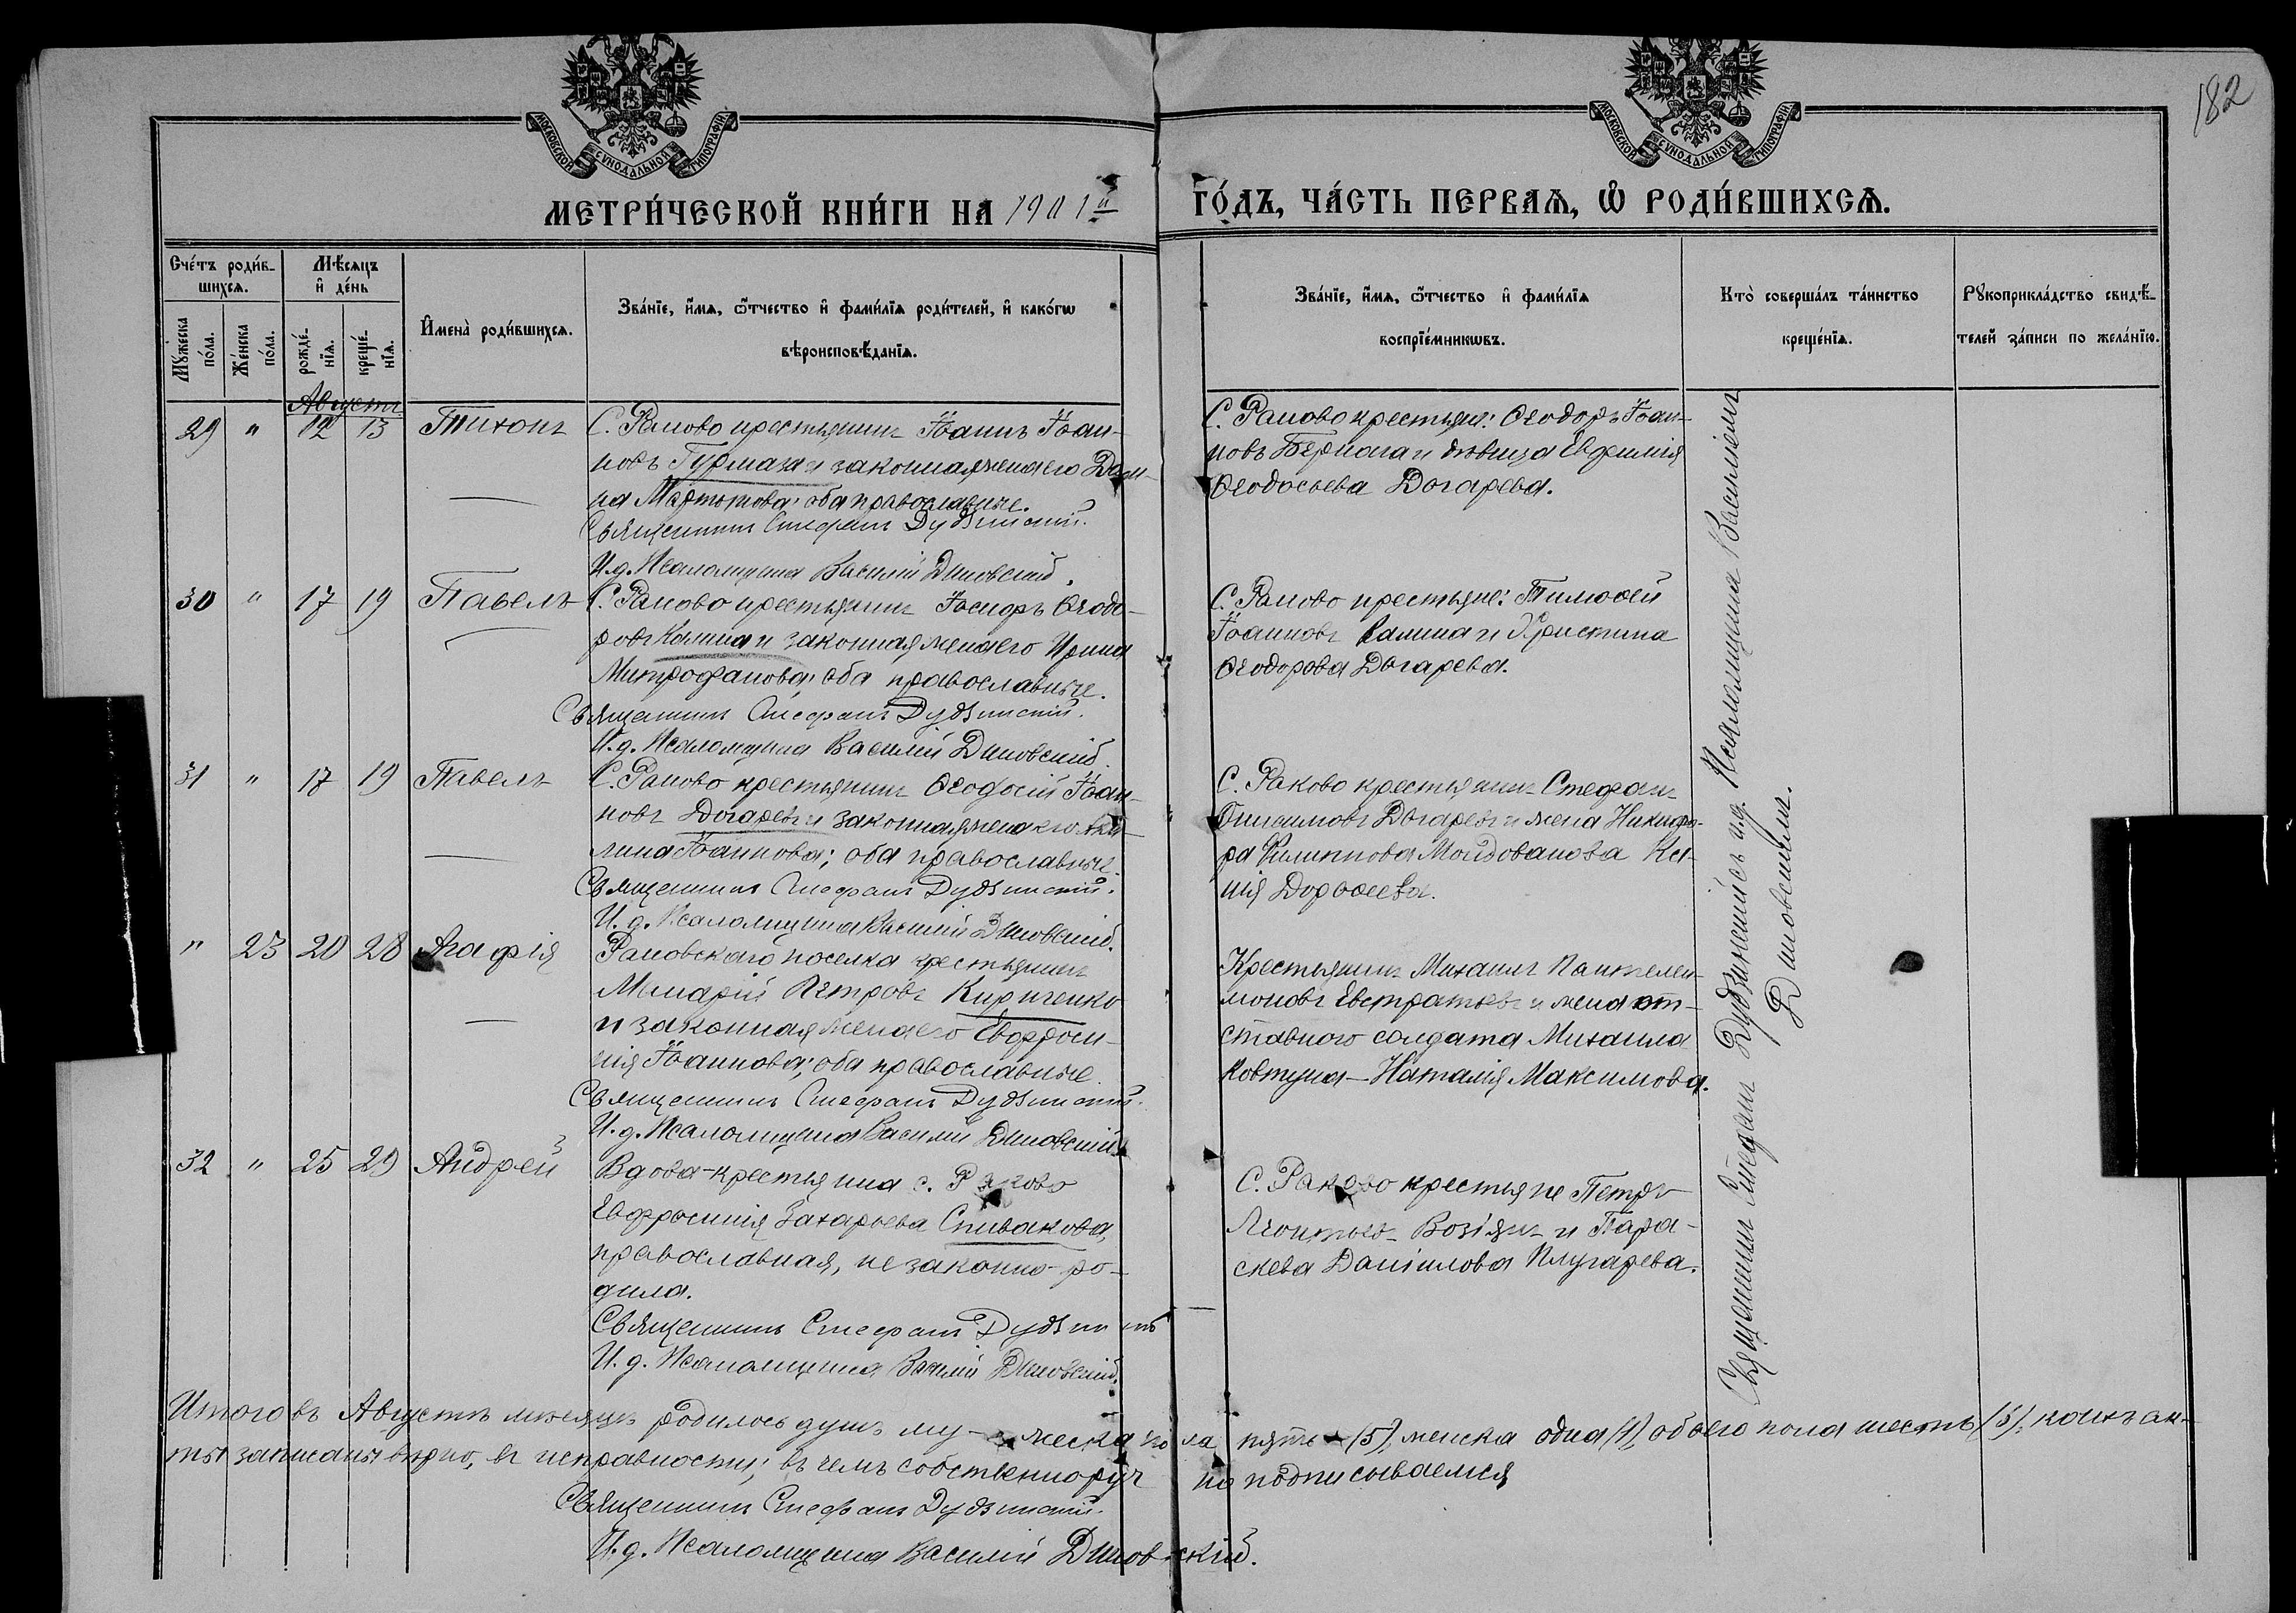 182
МОСКОВСКОЙ СѴНОДАЛЬНОЙ ТИПОГРАФІИ
МОСКОВСКОЙ СѴНОДАЛЬНОЙ ТИПОГРАФІИ
МЕТРИ́ЧЕСКОЙ КНИ́ГИ НА 1901й ГО́ДЪ, ЧА́СТЬ ПЕРВАѦ, Ѡ҆ РОДИ́ВШИХСѦ.
Сче́тъ роди́в-
шихсѧ.
Мꙋ́жеска по́ла.
Же́нска по́ла.
Мѣ́сѧцъ и҆ де́нь
рожде́-
нїѧ.
креще́-
нїѧ.
И҆мена̀ роди́вшихсѧ.
Зва́нїе, и҆́мѧ, ѻ҆́тчество и҆ фами́лїѧ роди́телей, и҆ како́гѡ
вѣроисповѣ́данїѧ.
Зва́нїе, и҆́мѧ, ѻ҆́тчество и҆ фами́лїѧ
воспрїе́мникѡвъ.
Кто̀ соверша́лъ та́инство
креще́нїѧ.
Рꙋкоприкла́дство свидѣ́-
телей за́писи по жела́нїю.
Августъ
29 " 12 13 Тихонъ
С. Раково крестьянинъ Іоаннъ Іоан-
новъ Гурмаза и законная жена его Дом-
на Мартинова; оба православные.
Священникъ Стефанъ Дудзинскій.
И. д. Псаломщика Василій Дымовскій.
С. Раково крестьяне: Ѳеодоръ Іоан-
новъ Бернага и дѣвица Евфимія
Ѳеодосьева Догарева.
30 " 17 19 Павелъ
С. Раково крестьянинъ Іосифъ Ѳеодо-
ровъ Калина и законная жена его Ирина
Митрофанова; оба православные.
Священникъ Стефанъ Дудзинскій.
И. д. Псаломщика Василій Дымовскій.
С. Раково крестьяне: Тимоѳей
Іоанновъ Калина и Христина
Ѳеодорова Догарева.
31 " 17 19 Павелъ
С. Раково крестьянинъ Ѳеодосій Іоан-
новъ Догаревъ и законная жена его Аки-
лина Іоаннова; оба православные.
Священникъ Стефанъ Дудзинскій.
И. д. Псаломщика Василій Дымовскій.
С. Раково крестьянинъ Стефанъ
Онисимовъ Догаревъ и жена Никифо-
ра Филиппова Молдованова Ксе-
нія Дороѳеева.
" 23 20 28 Агафія
Раковскаго поселка крестьянинъ
Макарій Петровъ Кириченко
и законная жена его Евфроси-
нія Іоаннова; оба православные.
Священникъ Стефанъ Дудзинскій.
И. д. Псаломщика Василій Дымовскій.
Крестьянинъ Михаилъ Пантелей-
моновъ Евстратьевъ и жена от-
ставного солдата Михаила
Ковтуна - Наталія Максимова.
32 " 25 29 Андрей
Вдова-крестьянка с. Раково
Евфросинія Захарьева Спивакова,
православная, незаконно ро-
дила.
Священникъ Стефанъ Дудзинскій
И. д. Псаломщика Василій Дымовскій.
С. Раково крестьяне Петръ
Леонтьевъ Возіянъ и Пара-
скева Даніилова Плугарева.
Священникъ Стефанъ Дудзинскій съ и. д. Псаломщика Василіемъ
Дымовскимъ.
Итого въ Августѣ мѣсяцѣ родилось душъ му-жеска пола пять (5), женска одна (1), обоего пола шесть (6), коихъ ак-
ты записаны вѣрно, въ исправности; въ чемъ собственноручно подписываемся
Священникъ Стефанъ Дудзинскій.
И. д. Псаломщика Василій Дымовскій.